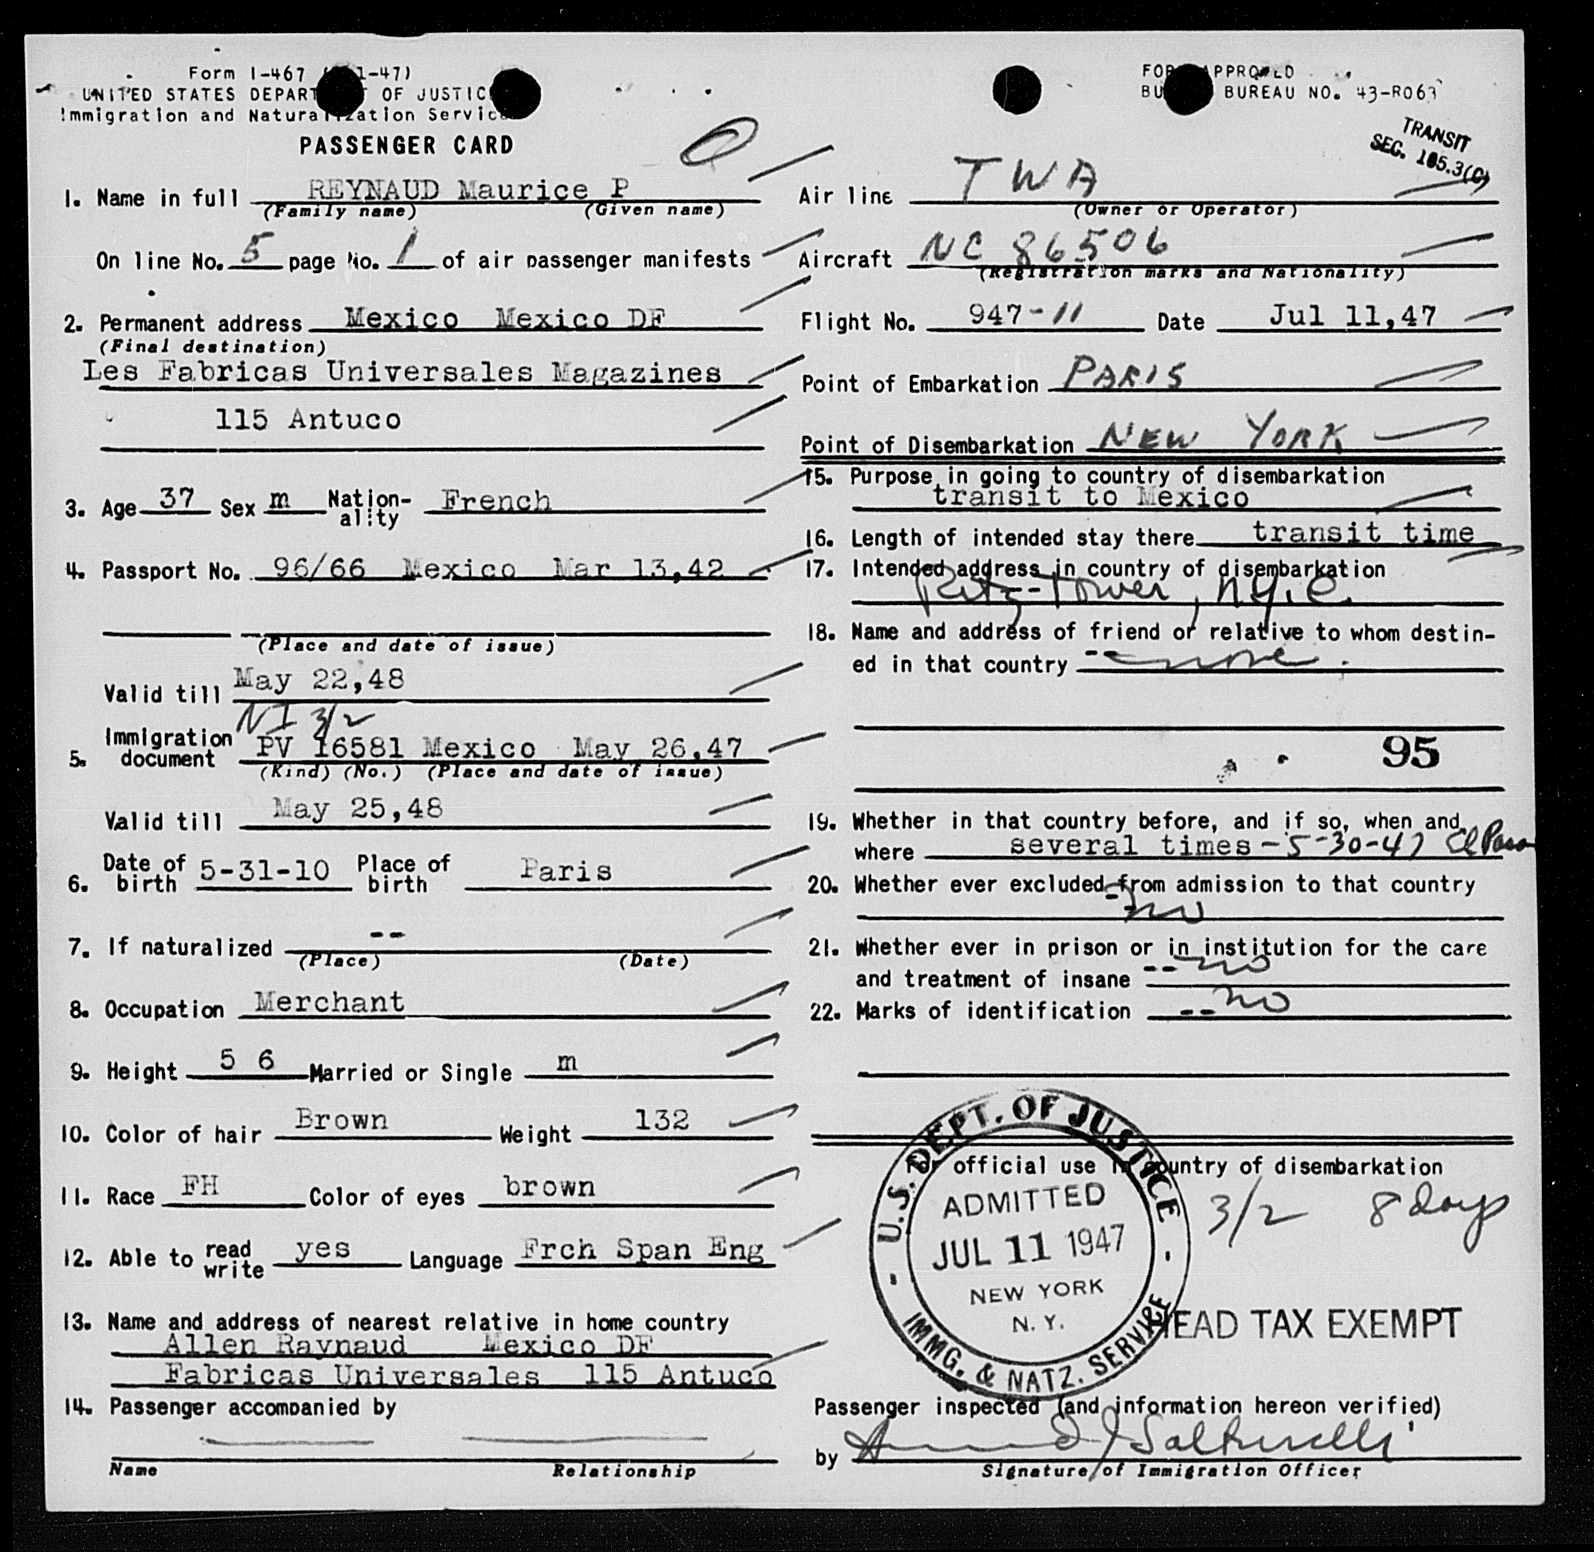 Form I-467 ( 1-47)
UNITED STATES DEPART T OF JUSTIC
Immigration and Naturalization Service
PASSENGER CARD
FOR APPROVED
BU BUREAU NO. 43-R063
TRANSIT
SEC. 105.3(C)
1. Name in full REYNAUD Maurice P
(Family name) (Given name)
On line No. 5 page No. 1 of air passenger manifests
2. Permanent address Mexico Mexico DF
(Final destination)
Les Fabricas Universales Magazines
115 Antuco
3. Age 37 Sex m Nation-ality French
4. Passport No. 96/66 Mexico Mar 13,42
(Place and date of issue)
Valid till May 22,48
NI 3/2
5. Immigration document PV 16581 Mexico May 26,47
(Kind) (No.) (Place and date of issue)
Valid till May 25,48
6. Date of birth 5-31-10 Place of birth Paris
7. If naturalized --
(Place) (Date)
8. Occupation Merchant
9. Height 5 6 Married or Single m
10. Color of hair Brown Weight 132
11. Race FH Color of eyes brown
12. Able to read write yes Language Frch Span Eng
13. Name and address of nearest relative in home country
Allen Raynaud Mexico DF
Fabricas Universales 115 Antuco
14. Passenger accompanied by
Name Relationship
Air line TWA
(Owner or Operator)
Aircraft NC 86506
(Registration marks and Nationality)
Flight No. 947-11 Date Jul 11,47
Point of Embarkation PARIS
Point of Disembarkation NEW YORK
15. Purpose in going to country of disembarkation
transit to Mexico
16. Length of intended stay there transit time
17. Intended address in country of disembarkation
Ritz-Tower, N.Y.C.
18. Name and address of friend or relative to whom destin-
ed in that country -- none.
95
19. Whether in that country before, and if so, when and
where several times - 5-30-47 El Paso
20. Whether ever excluded from admission to that country
-- no
21. Whether ever in prison or in institution for the care
and treatment of insane -- no
22. Marks of identification -- no
For official use in country of disembarkation
U.S. DEPT. OF JUSTICE
ADMITTED
JUL 11 1947
NEW YORK
N. Y.
IMMG. & NATZ. SERVICE
3/2 8 days
HEAD TAX EXEMPT
Passenger inspected (and information hereon verified)
by
Signature of Immigration Officer